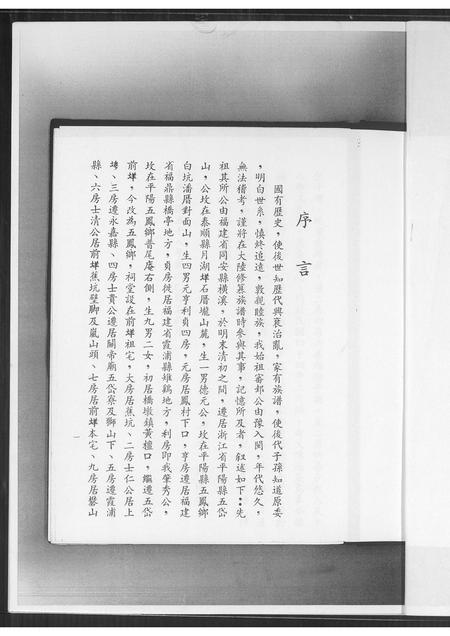 序言
國有歷史，使後世知歷代興衰治亂，家有族譜，使後代子孫知道原委
，明白世系，慎終追遠，敦親睦族，我始祖審邽公由豫入閩，年代悠久，
無法稽考，謹將在大陸修篡族譜時參與其事，記憶所及者，叙述如下：先
祖其所公由福建省同安縣橫溪，於明末清初之間，遷居浙江省平陽縣五岱
山，公坟在泰順縣月湖垟石厝壠山麓，生一男德元公，坟在平陽縣五鳳鄉
白坑潘厝對面山，生四男元亨利貞四房，元房居鳳村下口，亨房遷居福建
省福鼎縣橋亭地方，貞房徙居福建省霞浦縣雉鷄地方，利房即我肇秀公，
坟在平陽五鳳鄉普尾庵右側，生九男二女，初居橋墩鎮黃檀口，繼遷五岱
前垟，今改為五鳳鄉，祠堂設在前垟祖宅，大房居蕉坑、二房士仁公居上
垮、三房遷永嘉縣、四房士貴公遷居關帝廟五岱寮及獅山下、五房遷霞浦
縣、六房士清公居前垟蕉坑壁脚及嵐山頭、七房居前垟本宅、九房居礬山